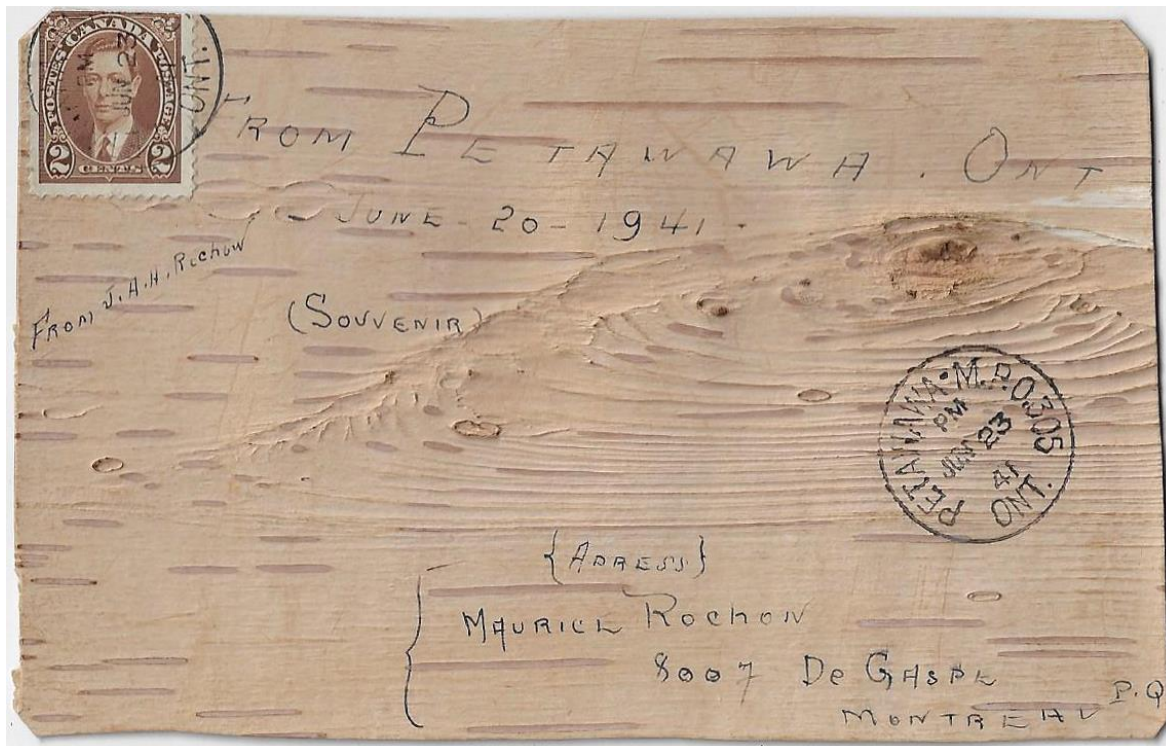 POSTES CANADA POSTAGE
2 CENTS 2
PM
JUN 23
ONT.
FROM PETAWAWA. ONT
JUNE - 20 - 1941 -
FROM J.A.H. Rochon
(SOUVENIR)
PETAWAWA·M.P.O.305
PM
JUN 23
41
ONT.
{ADRESS}
MAURICE ROCHON
8007 DE GASPE
MONTREAL P.Q